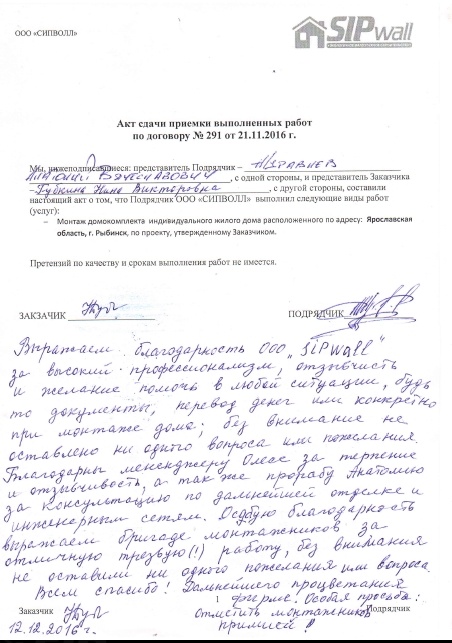 ООО «СИПВОЛЛ»
SIPwall
Акт сдачи приемки выполненных работ
по договору № 291 от 21.11.2016 г.
Мы, нижеподписавшиеся: представитель Подрядчик – Журавлев
Анатолий Вячеславович, с одной стороны, и представитель Заказчика
– Губкина Нина Викторовна, с другой стороны, составили
настоящий акт о том, что Подрядчик ООО «СИПВОЛЛ» выполнил следующие виды работ
(услуг):
– Монтаж домокомплекта индивидуального жилого дома расположенного по адресу: Ярославская
область, г. Рыбинск, по проекту, утвержденному Заказчиком.
Претензий по качеству и срокам выполнения работ не имеется.
ЗАКЗАЧИК
ПОДРЯДЧИК
Выражаем благодарность ООО „SIPwall"
за высокий профессионализм, отзывчисть
и желание помочь в любой ситуации, будь
то документы, перевод денег или конкретно
при монтаже дома; без внимание не
оставлено ни одного вопроса или пожелания.
Благодарны менеджеру Олесе за терпение
и отзывчивость, а так же прорабу Анатолию
за консультацию по дальнейшей отделке и
инженерным сетям. Особую благодарность
выражаем бригаде монтажников за
отличную трезвую(!) работу, без внимания
не оставили ни одного пожелания или вопроса.
Всем спасибо! Дальнейшего процветания
фирме. Особая просьба:
отметить монтажников
премией!
Заказчик
Подрядчик
12.12.2016 г.